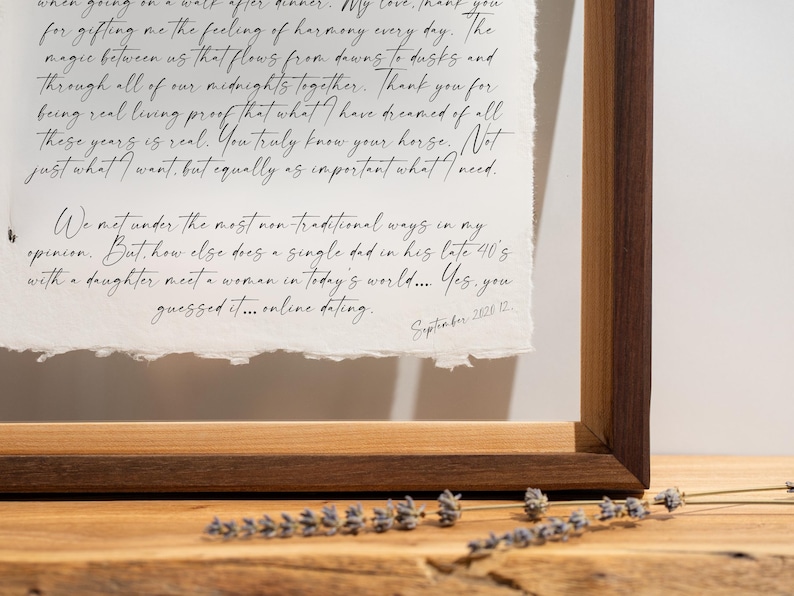 when going on a walk after dinner. My love, thank you
for gifting me the feeling of harmony every day. The
magic between us that flows from dawns to dusks and
through all of our midnights together. Thank you for
being real living proof that what I have dreamed of all
these years is real. You truly know your horse. Not
just what I want, but equally as important what I need.
We met under the most non-traditional ways in my
opinion. But, how else does a single dad in his late 40's
with a daughter meet a woman in today's world.... Yes, you
guessed it... online dating.
September 2020 12.